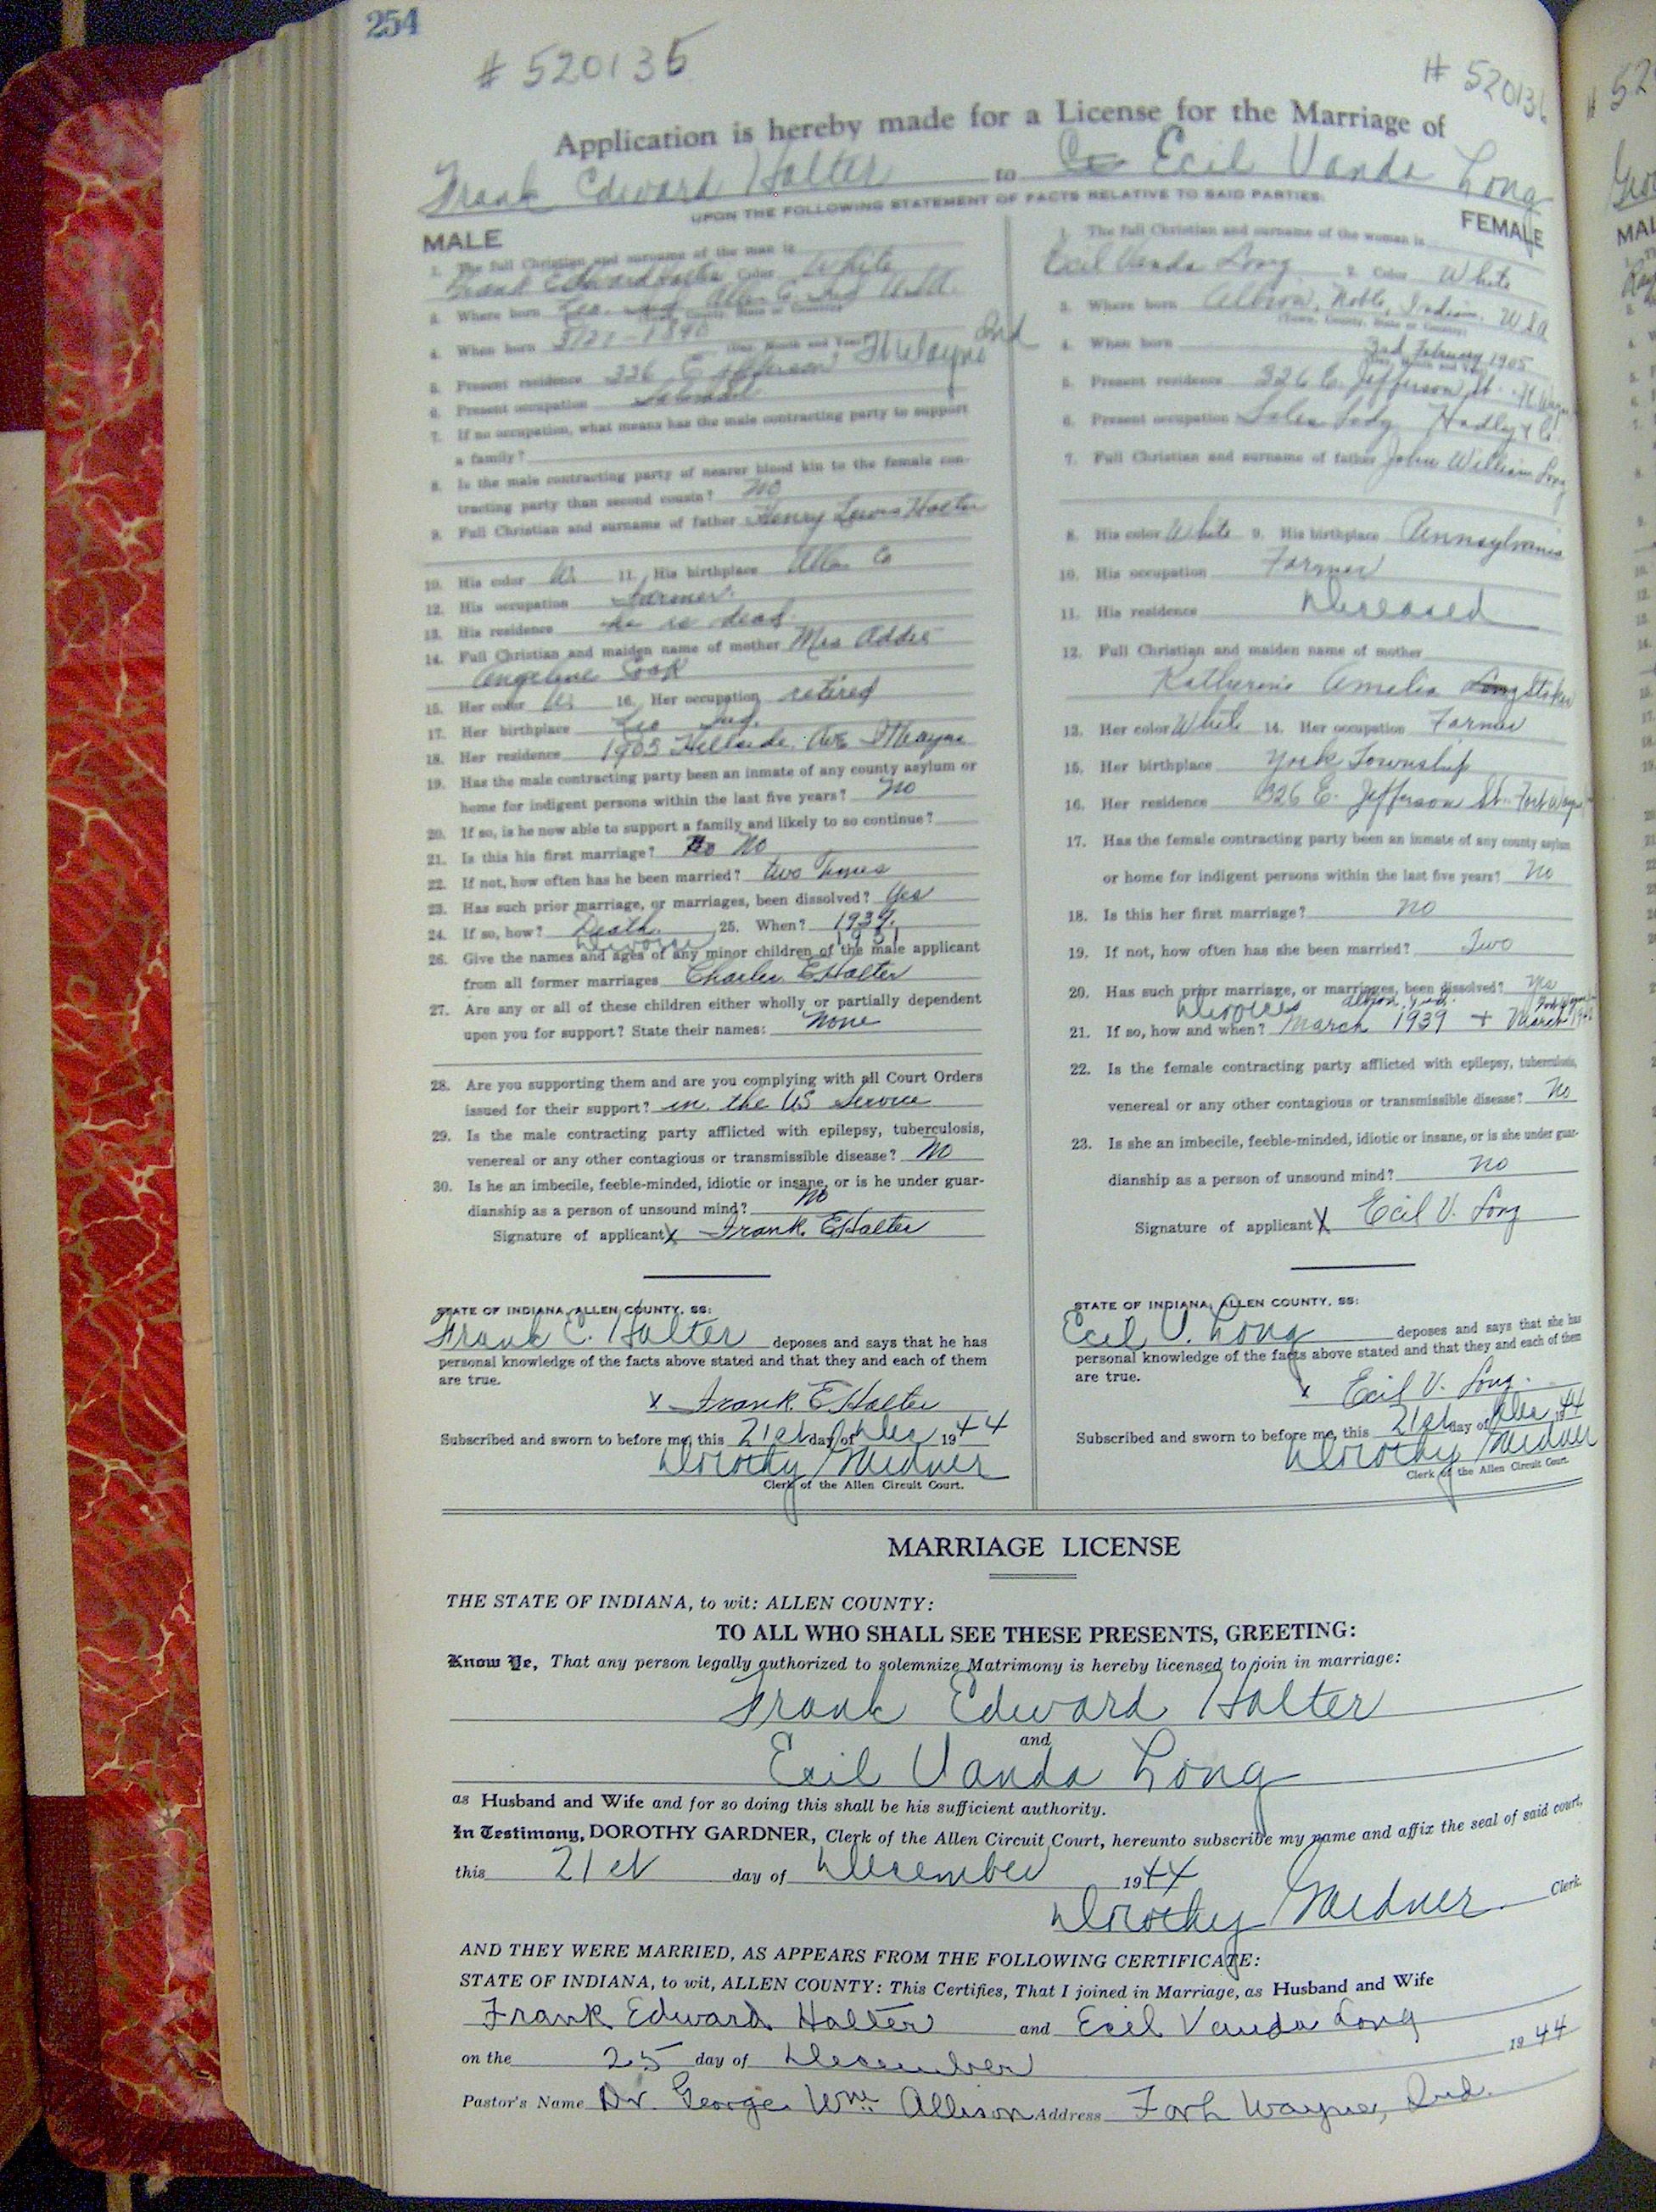 254
# 520135
# 52013
Application is hereby made for a License for the Marriage of
Frank Edward Halter to Ecil Vanda Long
UPON THE FOLLOWING STATEMENT OF FACTS RELATIVE TO SAID PARTIES:
MALE
1. The full Christian and surname of the man is
Frank Edward Halter Color White
3. Where born Leo Ind Allen Co Ind
4. When born 1890
5. Present residence 326 E Jefferson Ft Wayne Ind
6. Present occupation
7. If no occupation, what means has the male contracting party to support
a family?
8. Is the male contracting party of nearer blood kin to the female con-
tracting party than second cousin? No
9. Full Christian and surname of father Henry Lewis Halter
10. His color W. 11. His birthplace Allen Co
12. His occupation Farmer.
13. His residence he is dead
14. Full Christian and maiden name of mother Mrs Addie
Angeline Sook
15. Her color W. 16. Her occupation retired
17. Her birthplace Leo Ind.
18. Her residence 1903 Hillside Ave Ft Wayne
19. Has the male contracting party been an inmate of any county asylum or
home for indigent persons within the last five years? No
20. If so, is he now able to support a family and likely to so continue?
21. Is this his first marriage? No No
22. If not, how often has he been married? two Times
23. Has such prior marriage, or marriages, been dissolved? Yes
24. If so, how? Death. 25. When? 1937.
Divorce 1931
26. Give the names and ages of any minor children of the male applicant
from all former marriages Charles E Halter
27. Are any or all of these children either wholly or partially dependent
upon you for support? State their names: None
28. Are you supporting them and are you complying with all Court Orders
issued for their support? in the US Service
29. Is the male contracting party afflicted with epilepsy, tuberculosis,
venereal or any other contagious or transmissible disease? No
30. Is he an imbecile, feeble-minded, idiotic or insane, or is he under guar-
dianship as a person of unsound mind? No
Signature of applicant X Frank E Halter
STATE OF INDIANA, ALLEN COUNTY, SS:
Frank E. Halter deposes and says that he has
personal knowledge of the facts above stated and that they and each of them
are true.
X Frank E Halter
Subscribed and sworn to before me, this 21st day of Dec 1944
Dorothy Gardner
Clerk of the Allen Circuit Court.
FEMALE
1. The full Christian and surname of the woman is
Ecil Vanda Long 2. Color White
3. Where born Albion, Noble, Indiana USA
(Town, County, State or Country)
4. When born 2nd February 1905
5. Present residence 326 E. Jefferson St. Ft. Wayne
6. Present occupation Sales Lady Hadley & Co.
7. Full Christian and surname of father John William Long
8. His color White 9. His birthplace Pennsylvania
10. His occupation Farmer
11. His residence Deceased
12. Full Christian and maiden name of mother
Katherine Amelia
13. Her color White 14. Her occupation Farmer
15. Her birthplace York Township
16. Her residence 326 E. Jefferson St. Fort Wayne
17. Has the female contracting party been an inmate of any county asylum
or home for indigent persons within the last five years? No
18. Is this her first marriage? No
19. If not, how often has she been married? Two
20. Has such prior marriage, or marriages, been dissolved? Yes
Divorces Albion, Ind. Fort Wayne
21. If so, how and when? March 1939 + March
22. Is the female contracting party afflicted with epilepsy, tuberculosis,
venereal or any other contagious or transmissible disease? No
23. Is she an imbecile, feeble-minded, idiotic or insane, or is she under guar-
dianship as a person of unsound mind? No
Signature of applicant X Ecil V. Long
STATE OF INDIANA, ALLEN COUNTY, SS:
Ecil V. Long deposes and says that she has
personal knowledge of the facts above stated and that they and each of them
are true.
X Ecil V. Long.
Subscribed and sworn to before me, this 21st day of Dec 1944
Dorothy Gardner
Clerk of the Allen Circuit Court.
MARRIAGE LICENSE
THE STATE OF INDIANA, to wit: ALLEN COUNTY:
TO ALL WHO SHALL SEE THESE PRESENTS, GREETING:
Know Ye, That any person legally authorized to solemnize Matrimony is hereby licensed to join in marriage:
Frank Edward Halter
and
Ecil Vanda Long
as Husband and Wife and for so doing this shall be his sufficient authority.
In Testimony, DOROTHY GARDNER, Clerk of the Allen Circuit Court, hereunto subscribe my name and affix the seal of said court,
this 21st day of December 1944
Dorothy Gardner Clerk.
AND THEY WERE MARRIED, AS APPEARS FROM THE FOLLOWING CERTIFICATE:
STATE OF INDIANA, to wit, ALLEN COUNTY: This Certifies, That I joined in Marriage, as Husband and Wife
Frank Edward Halter and Ecil Vanda Long
on the 25 day of December 1944
Pastor's Name Dr. George Wm. Allison Address Fort Wayne, Ind.